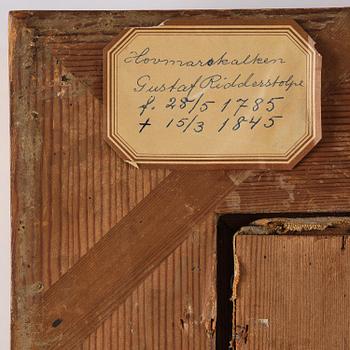 Hovmarskalken
Gustaf Ridderstolpe
f. 28/5 1785
+ 15/3 1845